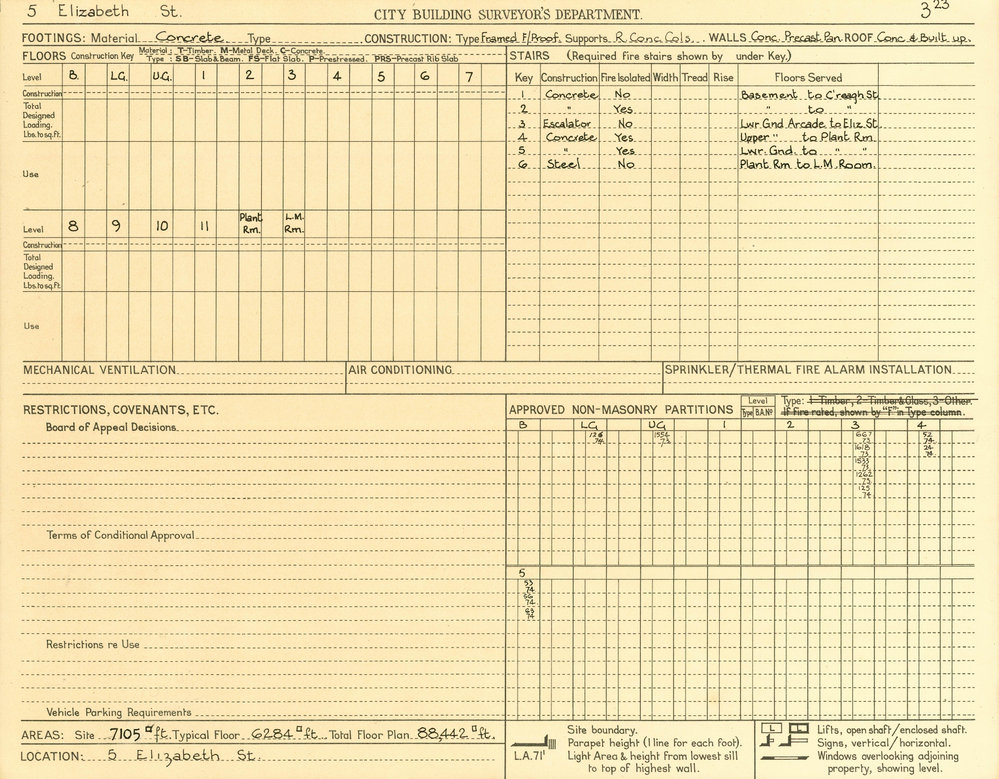 5 Elizabeth St. CITY BUILDING SURVEYOR'S DEPARTMENT. 3 23
FOOTINGS: Material Concrete Type CONSTRUCTION: Type Framed F/Proof. Supports R. Conc. Cols. WALLS Conc. Precast Pan. ROOF Conc & Built up.
FLOORS Construction Key Material: T-Timber. M-Metal Deck. C-Concrete.
Type: SB-Slab & Beam. FS-Flat Slab. P-Prestressed. PRS-Precast Rib Slab
STAIRS (Required fire stairs shown by under Key.)
Level B. LG. UG. 1 2 3 4 5 6 7
Construction
Total
Designed
Loading.
Lbs. to sq. ft.
Use
Level 8 9 10 11 Plant Rm. L.M. Rm.
Construction
Total
Designed
Loading.
Lbs. to sq. ft.
Use
Key Construction Fire Isolated Width Tread Rise Floors Served
1 Concrete No Basement to C'reagh St.
2 " Yes " to "
3 Escalator No Lwr Gnd Arcade to Eliz St.
4 Concrete Yes Upper " to Plant Rm.
5 " Yes Lwr. Gnd. to " "
6 Steel No Plant Rm to L.M. Room.
MECHANICAL VENTILATION AIR CONDITIONING SPRINKLER/THERMAL FIRE ALARM INSTALLATION
RESTRICTIONS, COVENANTS, ETC.
Board of Appeal Decisions.
Terms of Conditional Approval
Restrictions re Use
Vehicle Parking Requirements
APPROVED NON-MASONRY PARTITIONS Level Type B.A.Nº Type: 1-Timber, 2-Timber & Glass, 3-Other.
If fire rated, shown by "F" in Type column.
B LG UG 1 2 3 4
126 74 1554 73 667 73 52 74
1618 73 24 74
1533 73
1262 73
125 74
5
53 74
56 74
63 74
AREAS: Site 7105 □ ft. Typical Floor 6284 □ ft. Total Floor Plan 88,442 □ ft.
LOCATION: 5 Elizabeth St.
Site boundary.
Parapet height (1 line for each foot).
L.A.71' Light Area & height from lowest sill
to top of highest wall.
L L Lifts, open shaft/enclosed shaft.
Signs, vertical/horizontal.
Windows overlooking adjoining
property, showing level.